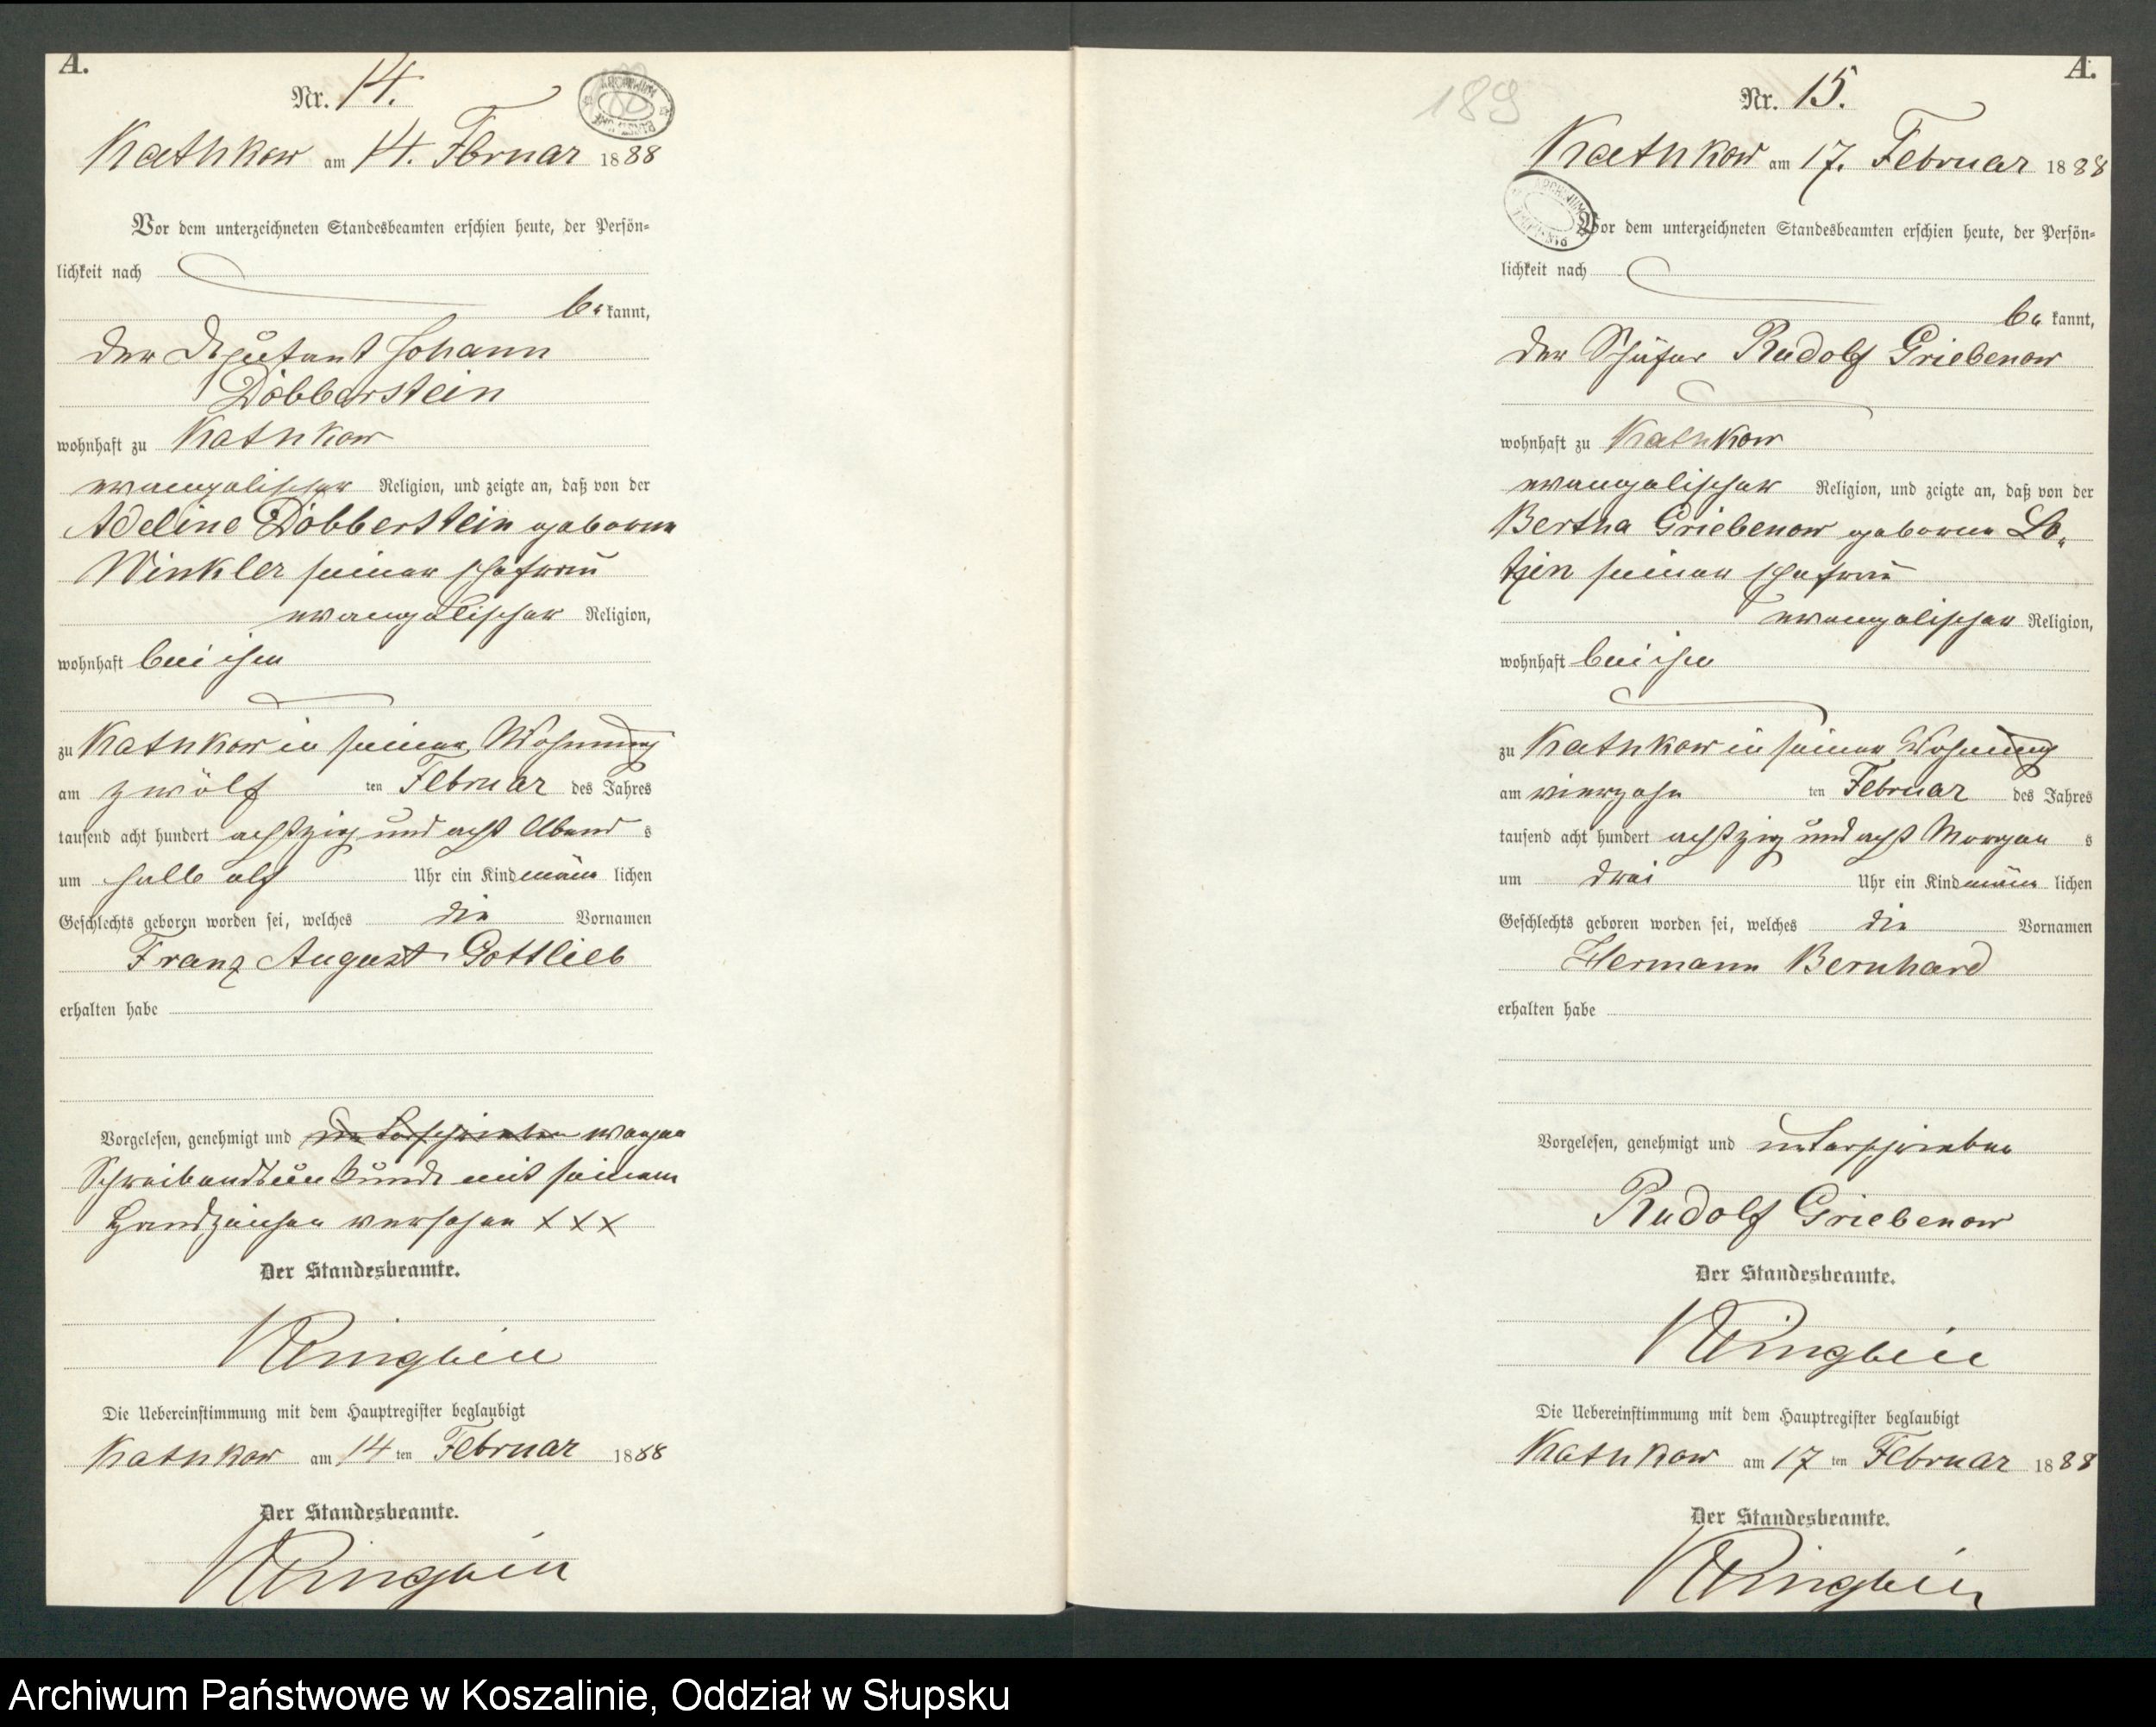 A.
Nr. 14.
Kathkow am 14. Februar 1888
Vor dem unterzeichneten Standesbeamten erschien heute, der Persön-
lichkeit nach
be kannt,
der Deputant Johann
Döbberstein
wohnhaft zu Kathkow
evangelischer Religion, und zeigte an, daß von der
Adeline Döbberstein geborene
Winkler seiner Ehefrau
evangelischer Religion,
wohnhaft bei ihm
zu Kathkow in seiner Wohnung
am zwölf ten Februar des Jahres
tausend acht hundert achtzig und acht Abend s
um halb elf Uhr ein Kind männ lichen
Geschlechts geboren worden sei, welches die Vornamen
Franz August Gottlieb
erhalten habe
Vorgelesen, genehmigt und unterschrieben wegen
Schreibensunkunde mit seinem
Handzeichen versehen XXX
Der Standesbeamte.
Die Uebereinstimmung mit dem Hauptregister beglaubigt
Kathkow am 14 ten Februar 1888
Der Standesbeamte.
189
A.
Nr. 15.
Kathkow am 17. Februar 1888
Vor dem unterzeichneten Standesbeamten erschien heute, der Persön-
lichkeit nach
be kannt,
der Schäfer Rudolf Griebenow
wohnhaft zu Kathkow
evangelischer Religion, und zeigte an, daß von der
Bertha Griebenow geborene Lo-
tzin seiner Ehefrau
evangelischer Religion,
wohnhaft bei ihm
zu Kathkow in seiner Wohnung
am vierzehn ten Februar des Jahres
tausend acht hundert achtzig und acht Morgen s
um drei Uhr ein Kind männ lichen
Geschlechts geboren worden sei, welches die Vornamen
Hermann Bernhard
erhalten habe
Vorgelesen, genehmigt und unterschrieben
Rudolf Griebenow
Der Standesbeamte.
Die Uebereinstimmung mit dem Hauptregister beglaubigt
Kathkow am 17 ten Februar 1888
Der Standesbeamte.
Archiwum Państwowe w Koszalinie, Oddział w Słupsku